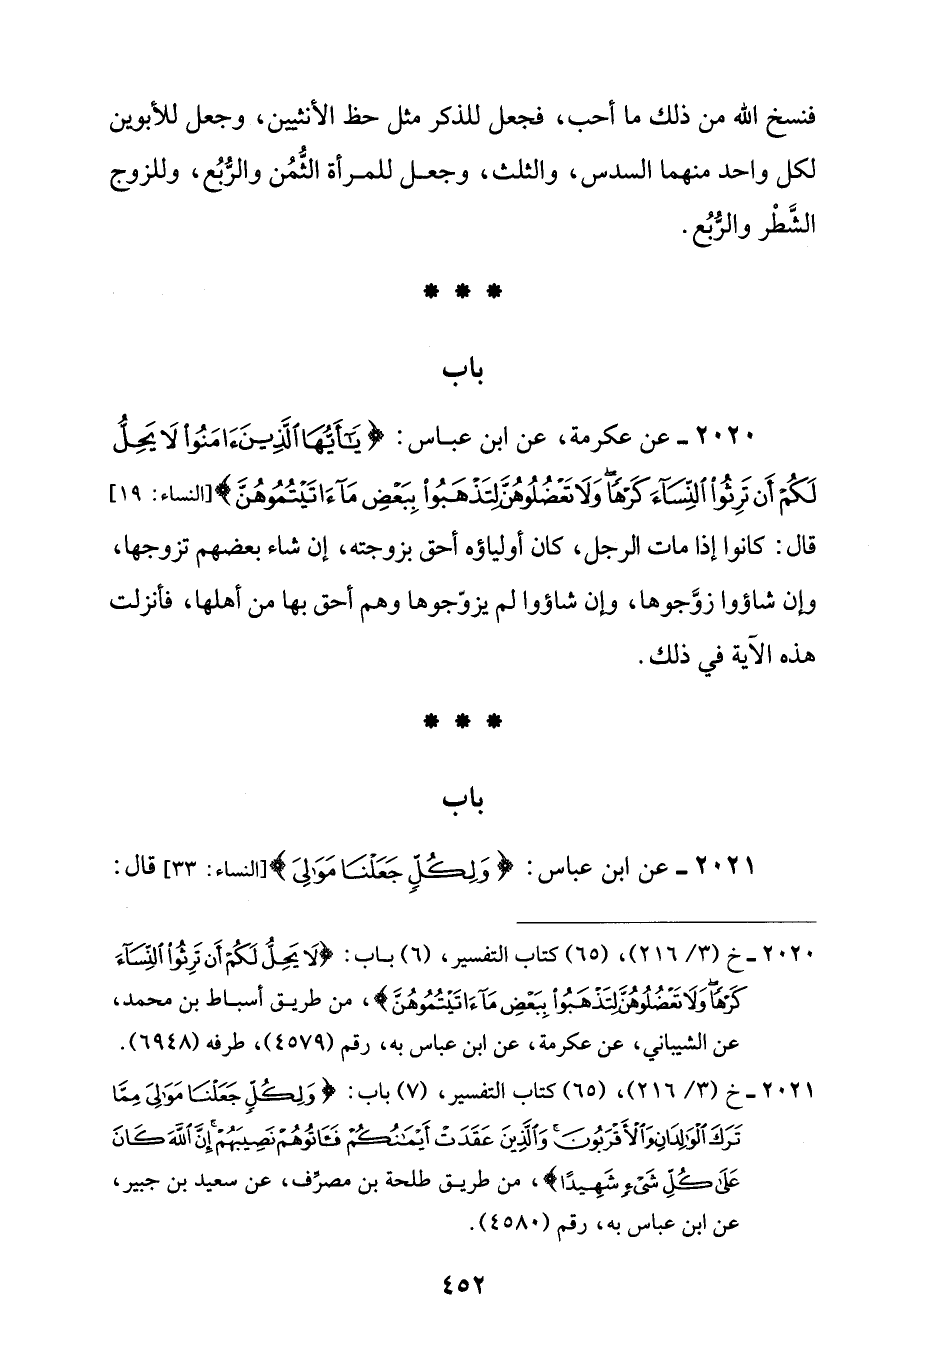 فنسخ الله من ذلك ما أحب، فجعل للذكر مثل حظ الأنثيين، وجعل للأبوين
لكل واحد منهما السدس، والثلث، وجعل للمرأة الثُّمُن والرُّبُع، وللزوج
الشَّطْر والرُّبُع.
* * *
باب
٢٠٢٠ ـ عن عكرمة، عن ابن عباس: ﴿يَٰٓأَيُّهَا ٱلَّذِينَ ءَامَنُوا۟ لَا يَحِلُّ
لَكُمْ أَن تَرِثُوا۟ ٱلنِّسَآءَ كَرْهًا ۖ وَلَا تَعْضُلُوهُنَّ لِتَذْهَبُوا۟ بِبَعْضِ مَآ ءَاتَيْتُمُوهُنَّ﴾ [النساء: ١٩]
قال: كانوا إذا مات الرجل، كان أولياؤه أحق بزوجته، إن شاء بعضهم تزوجها،
وإن شاؤوا زوَّجوها، وإن شاؤوا لم يزوّجوها وهم أحق بها من أهلها، فأنزلت
هذه الآية في ذلك.
* * *
باب
٢٠٢١ ـ عن ابن عباس: ﴿وَلِكُلٍّ جَعَلْنَا مَوَٰلِىَ﴾ [النساء: ٣٣] قال:
٢٠٢٠ ـ خ (٣/ ٢١٦)، (٦٥) كتاب التفسير، (٦) باب: ﴿لَا يَحِلُّ لَكُمْ أَن تَرِثُوا۟ ٱلنِّسَآءَ
كَرْهًا ۖ وَلَا تَعْضُلُوهُنَّ لِتَذْهَبُوا۟ بِبَعْضِ مَآ ءَاتَيْتُمُوهُنَّ﴾، من طريق أسباط بن محمد،
عن الشيباني، عن عكرمة، عن ابن عباس به، رقم (٤٥٧٩)، طرفه (٦٩٤٨).
٢٠٢١ ـ خ (٣/ ٢١٦)، (٦٥) كتاب التفسير، (٧) باب: ﴿وَلِكُلٍّ جَعَلْنَا مَوَٰلِىَ مِمَّا
تَرَكَ ٱلْوَٰلِدَانِ وَٱلْأَقْرَبُونَ ۚ وَٱلَّذِينَ عَقَدَتْ أَيْمَٰنُكُمْ فَـَٔاتُوهُمْ نَصِيبَهُمْ ۚ إِنَّ ٱللَّهَ كَانَ
عَلَىٰ كُلِّ شَىْءٍ شَهِيدًا﴾، من طريق طلحة بن مصرِّف، عن سعيد بن جبير،
عن ابن عباس به، رقم (٤٥٨٠).
٤٥٢